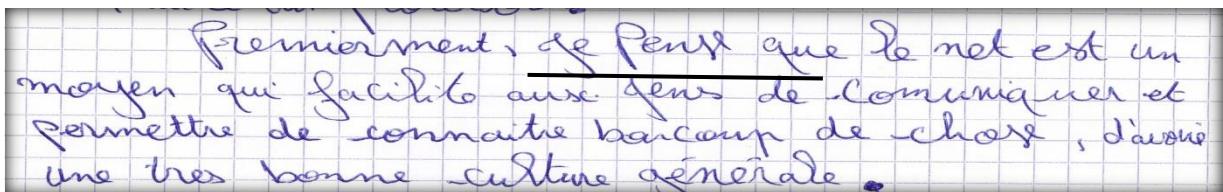 Premierment, je pense que le net est un
moyen qui facilite aux gens de comuniquer et
permettre de connaitre baucoup de chose, d'avoir
une tres bonne culture générale.